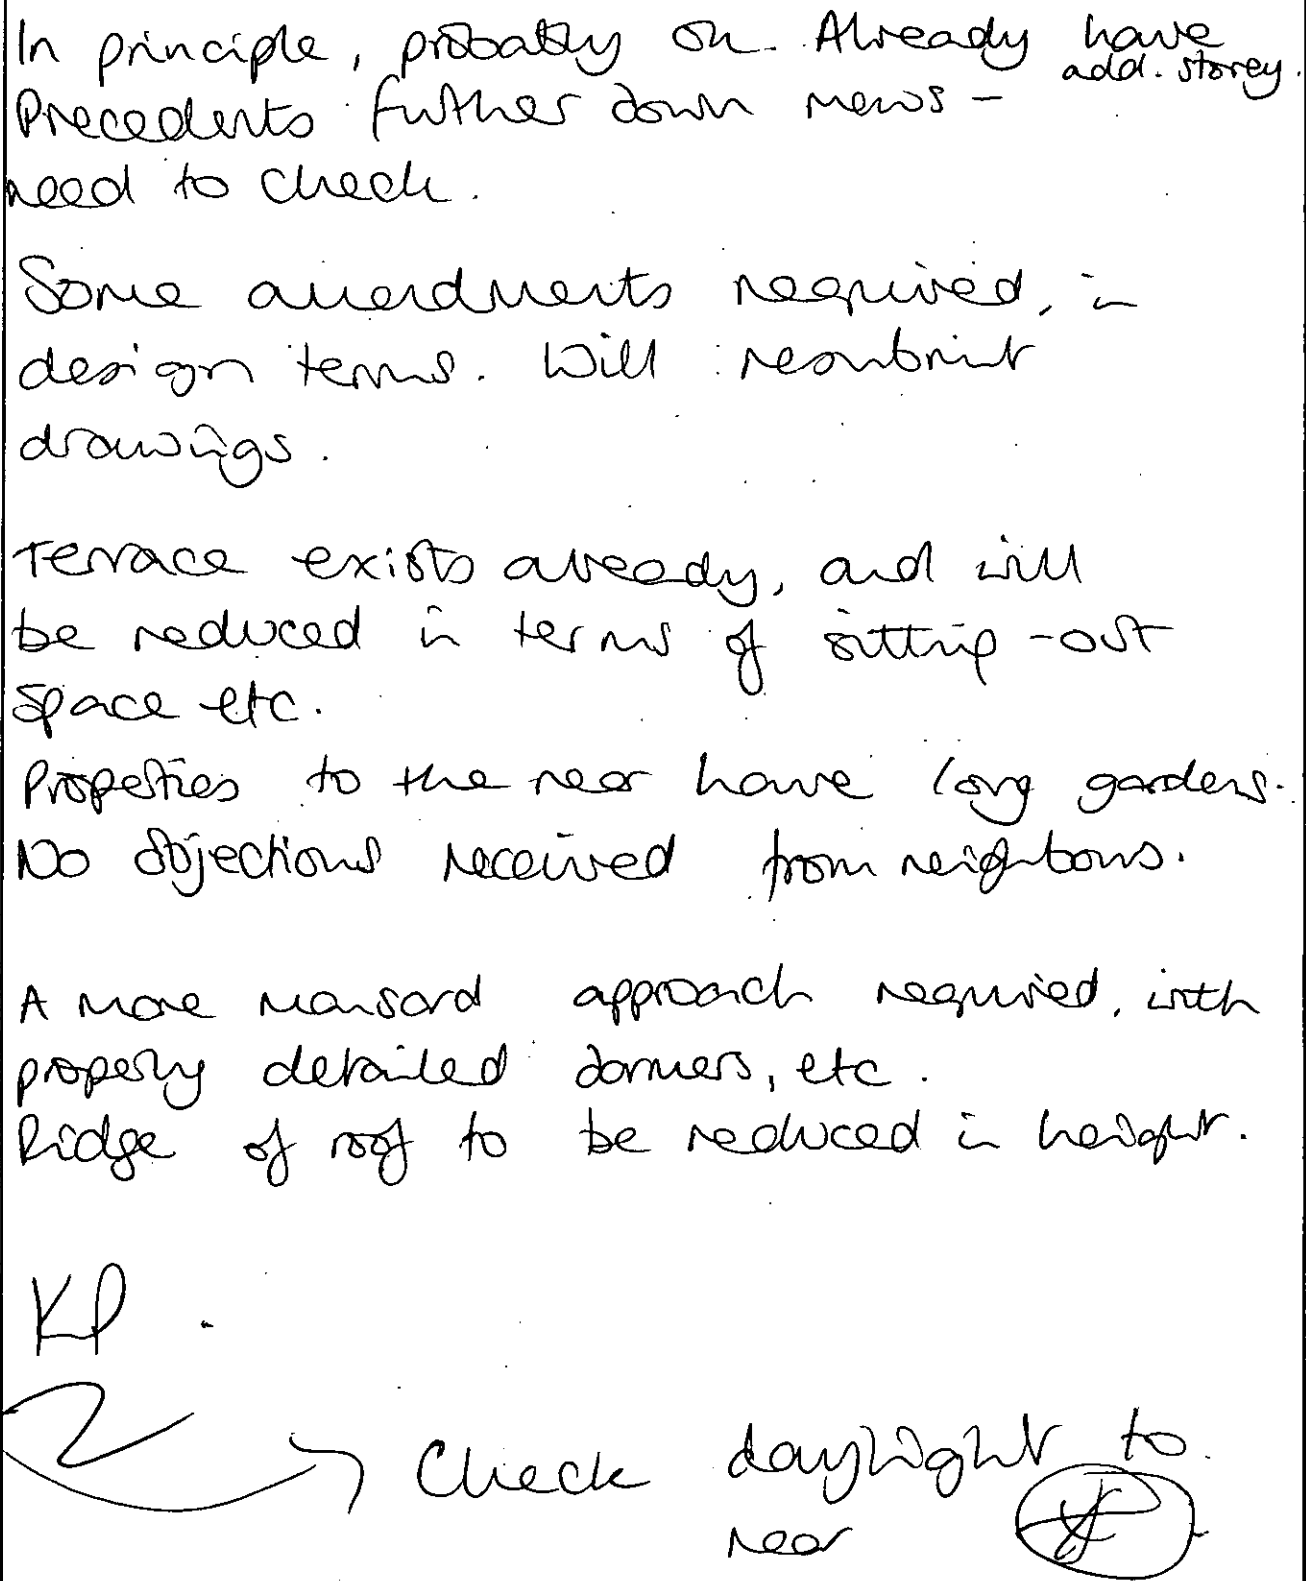 In principle, probably OK. Already have
add. storey.
Precedents further down mews -
need to check.
Some amendments required, in
design terms. Will resubmit
drawings.
Terrace exists already, and will
be reduced in terms of sitting-out
space etc.
Properties to the rear have long gardens.
No objections received from neighbours.
A more mansard approach required, with
properly detailed dormers, etc.
Ridge of roof to be reduced in height.
KP.
Check daylight to
rear